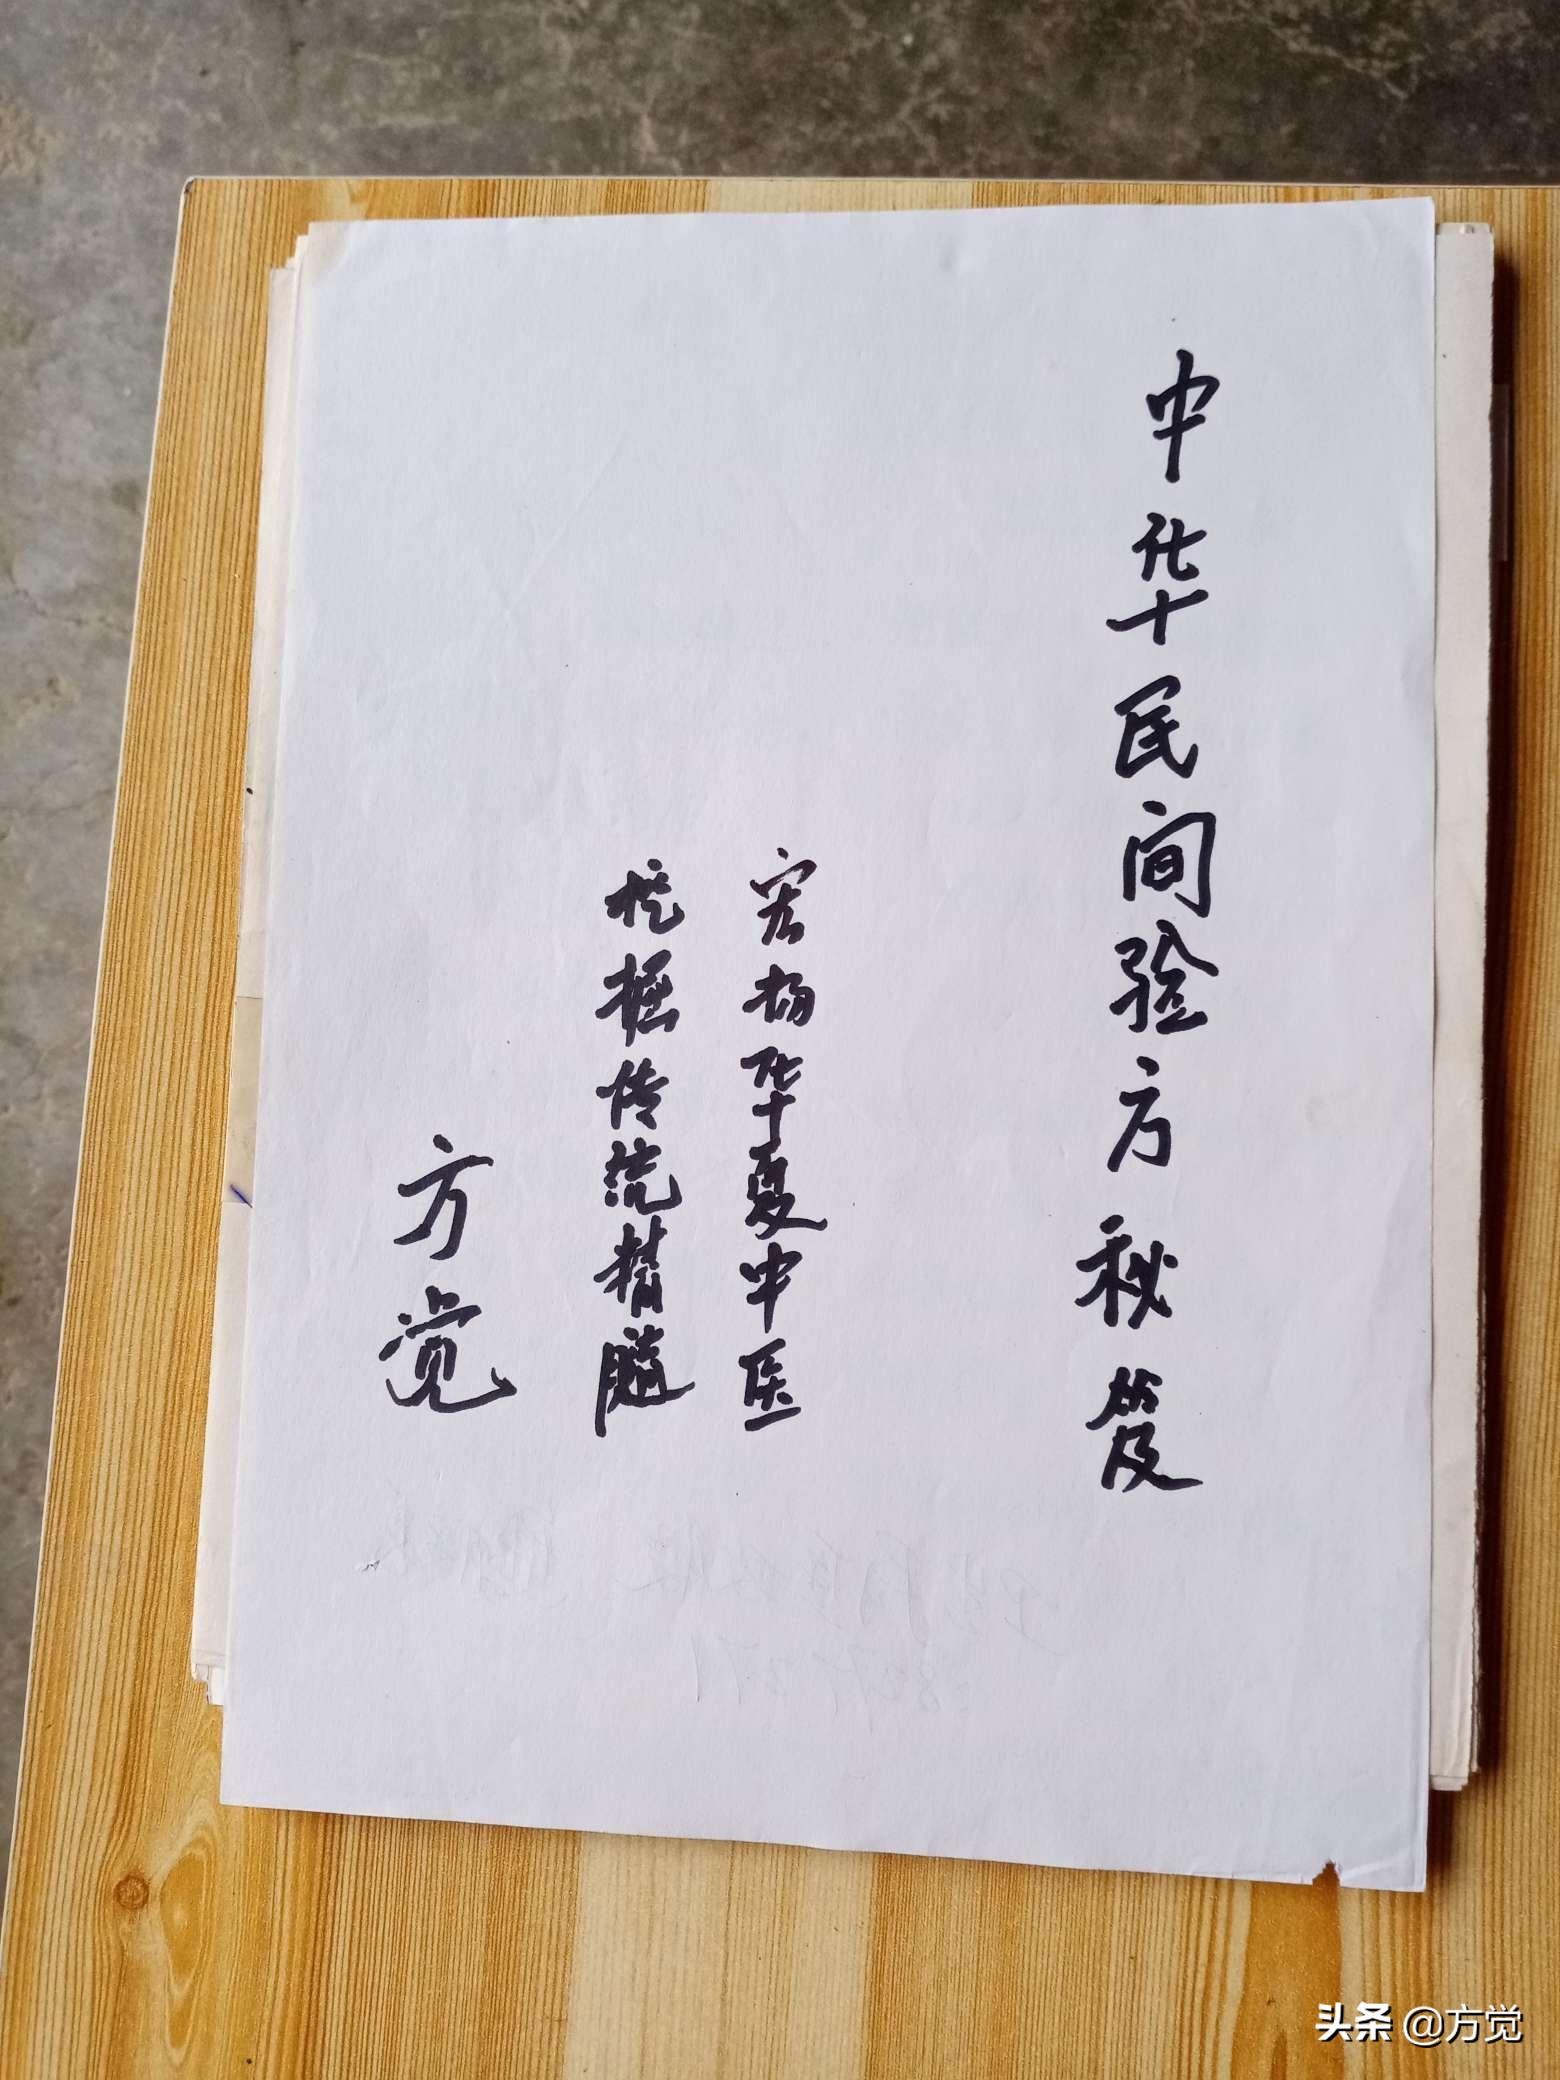 中华民间验方秘笈
宏扬华夏中医
挖掘传统精髓
方觉
头条 @方觉